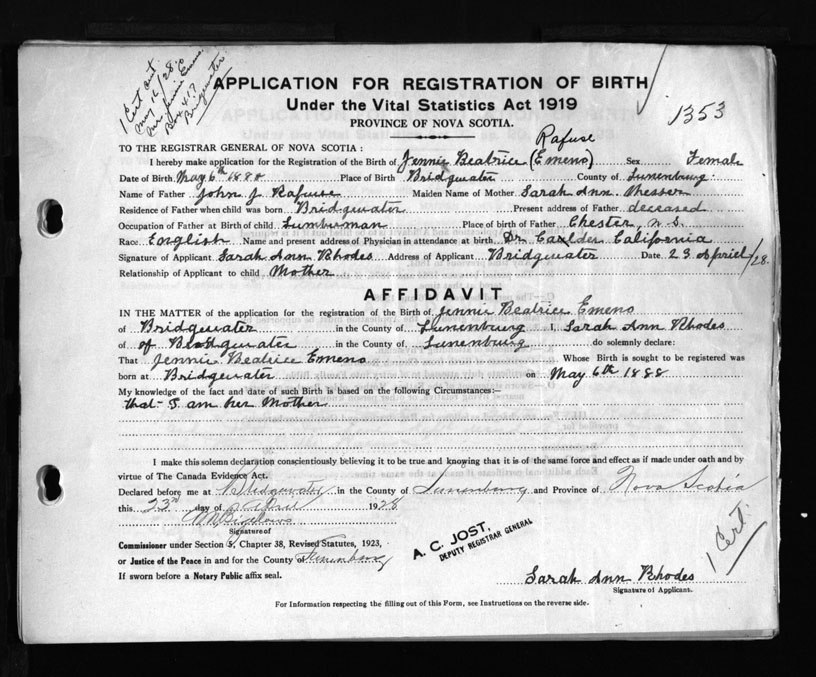 1 Cert sent
May 16/28 to
Mrs Jennie Emeno
Box 417
Bridgewater
APPLICATION FOR REGISTRATION OF BIRTH
Under the Vital Statistics Act 1919
1353
PROVINCE OF NOVA SCOTIA.
TO THE REGISTRAR GENERAL OF NOVA SCOTIA:
Rafuse
I hereby make application for the Registration of the Birth of Jennie Beatrice (Emeno) Sex Female
Date of Birth May 6th 1888 Place of Birth Bridgwater County of Lunenburg
Name of Father John J Rafuse Maiden Name of Mother Sarah Ann Messer
Residence of Father when child was born Bridgwater Present address of Father deceased
Occupation of Father at Birth of child Lumberman Place of birth of Father Chester, N.S.
Race English Name and present address of Physician in attendance at birth Dr. California
Signature of Applicant Sarah Ann Rhodes Address of Applicant Bridgwater Date 23 April/28.
Relationship of Applicant to child Mother
AFFIDAVIT
IN THE MATTER of the application for the registration of the Birth of Jennie Beatrice Emeno
of Bridgwater in the County of Lunenburg I, Sarah Ann Rhodes
of of Bridgwater in the County of Lunenburg do solemnly declare:
That Jennie Beatrice Emeno Whose Birth is sought to be registered was
born at Bridgwater on May 6th 1888
My knowledge of the fact and date of such Birth is based on the following Circumstances:—
that I am her Mother
I make this solemn declaration conscientiously believing it to be true and knowing that it is of the same force and effect as if made under oath and by
virtue of The Canada Evidence Act.
Declared before me at Bridgewater in the County of Lunenburg and Province of Nova Scotia
this 23rd day of April 1928
Signature of
Commissioner under Section 5, Chapter 38, Revised Statutes, 1923,
or Justice of the Peace in and for the County of Lunenburg
If sworn before a Notary Public affix seal.
A. C. JOST,
DEPUTY REGISTRAR GENERAL
1 Cert.
Sarah Ann Rhodes
Signature of Applicant.
For Information respecting the filling out of this Form, see Instructions on the reverse side.